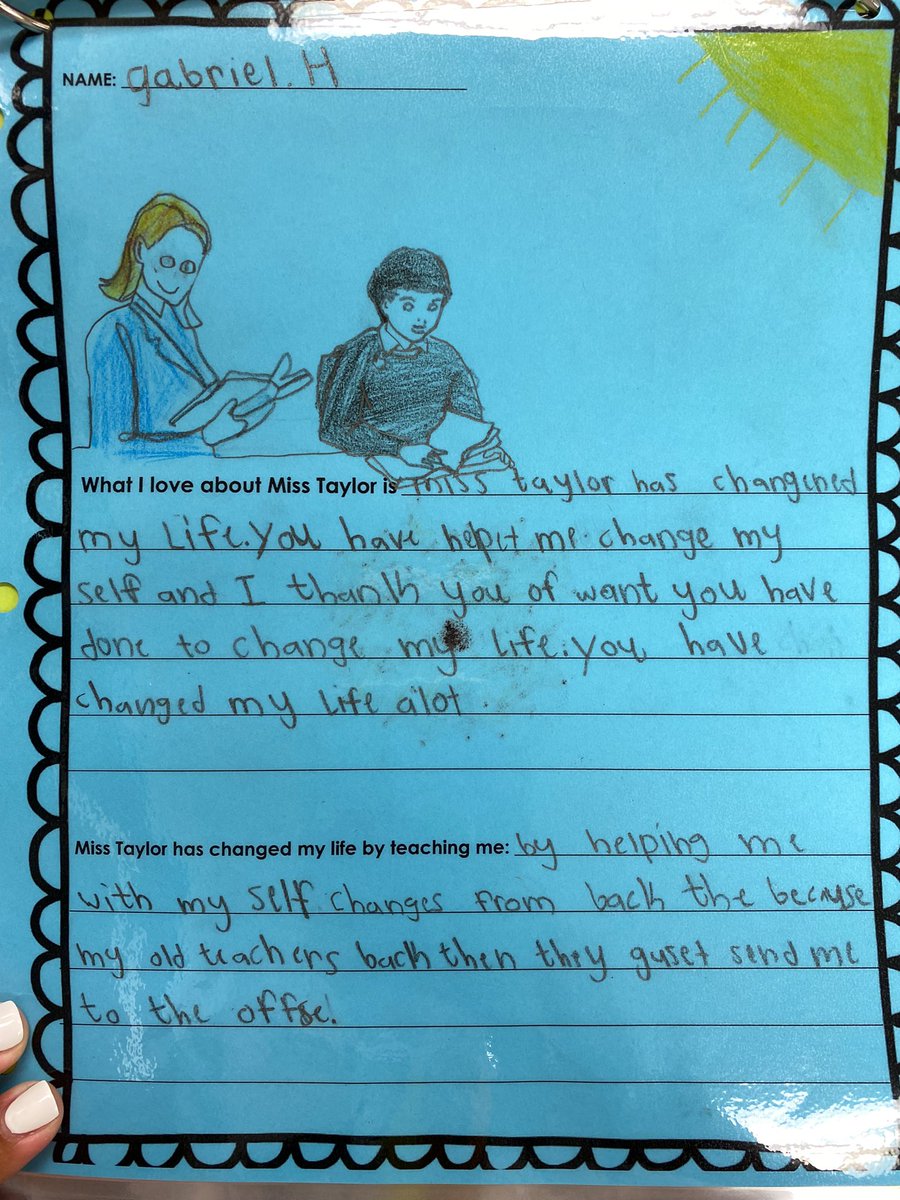 NAME: gabriel. H
What I love about Miss Taylor is miss taylor has changened
my Life. You have helpet me change my
self and I thank you of want you have
done to change my life. you have
changed my life alot
Miss Taylor has changed my life by teaching me: by helping me
with my self changes from back the because
my old teachers back then they guset send me
to the offse.